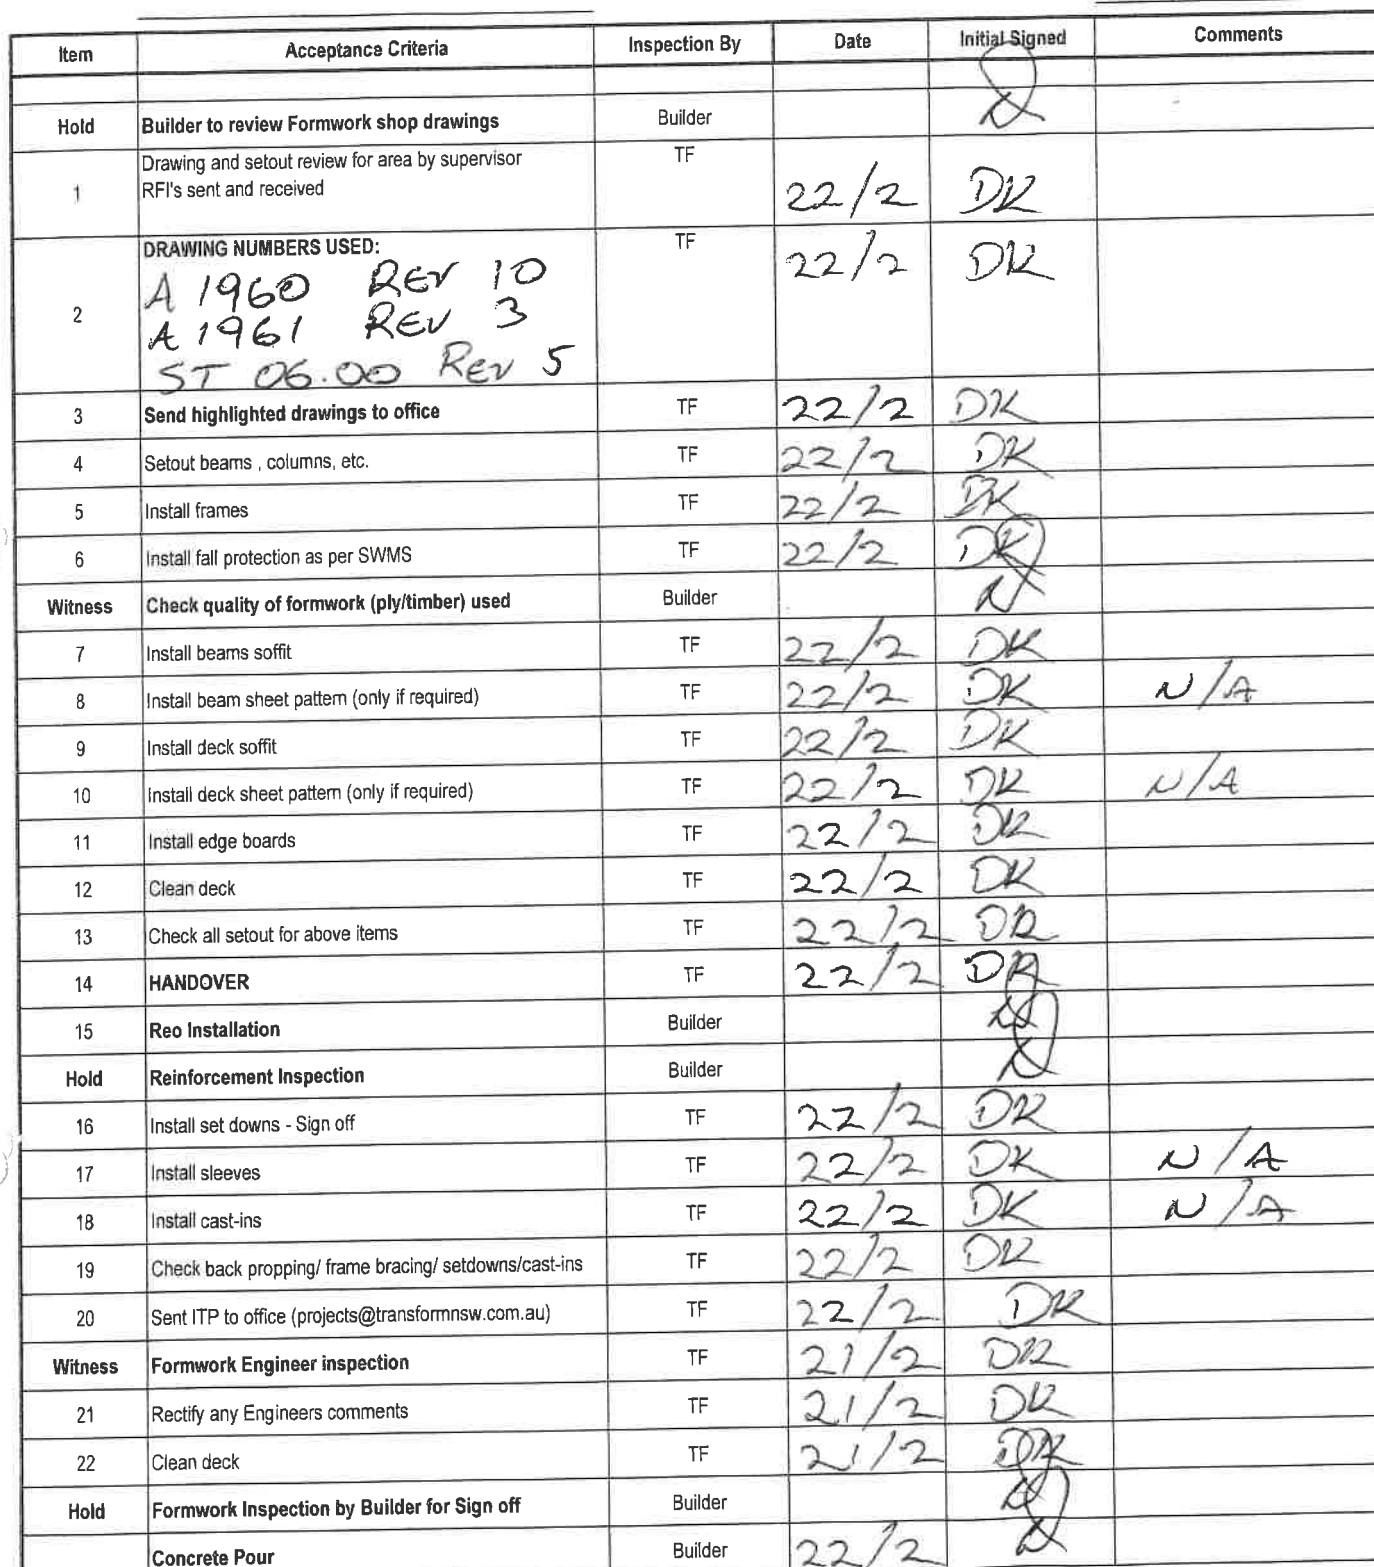 Item Acceptance Criteria Inspection By Date Initial Signed Comments
Hold Builder to review Formwork shop drawings Builder
1 Drawing and setout review for area by supervisor TF
RFI's sent and received 22/2 DK
2 DRAWING NUMBERS USED: TF 22/2 DK
A 1960 REV 10
A 1961 REV 3
ST 06.00 Rev 5
3 Send highlighted drawings to office TF 22/2 DK
4 Setout beams , columns, etc. TF 22/2 DK
5 Install frames TF 22/2 DK
6 Install fall protection as per SWMS TF 22/2 DK
Witness Check quality of formwork (ply/timber) used Builder
7 Install beams soffit TF 22/2 DK
8 Install beam sheet pattern (only if required) TF 22/2 DK N/A
9 Install deck soffit TF 22/2 DK
10 Install deck sheet pattern (only if required) TF 22/2 DK N/A
11 Install edge boards TF 22/2 DK
12 Clean deck TF 22/2 DK
13 Check all setout for above items TF 22/2 DK
14 HANDOVER TF 22/2 DK
15 Reo Installation Builder
Hold Reinforcement Inspection Builder
16 Install set downs - Sign off TF 22/2 DK
17 Install sleeves TF 22/2 DK N/A
18 Install cast-ins TF 22/2 DK N/A
19 Check back propping/ frame bracing/ setdowns/cast-ins TF 22/2 DK
20 Sent ITP to office (projects@transformnsw.com.au) TF 22/2 DK
Witness Formwork Engineer inspection TF 21/2 DK
21 Rectify any Engineers comments TF 21/2 DK
22 Clean deck TF 21/2 DK
Hold Formwork Inspection by Builder for Sign off Builder
Concrete Pour Builder 22/2